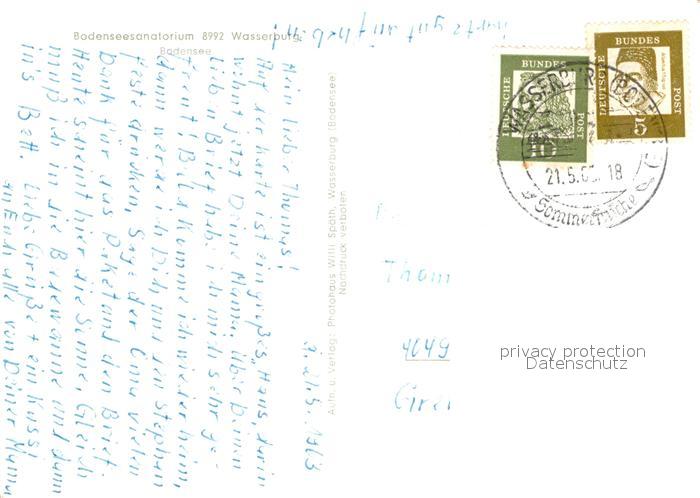 Bodenseesanatorium 8992 Wasserburg
Bodensee
Karte gut aufheben!
d. 21.5.1963
Mein lieber Thomas!
Auf der Karte ist ein großes Haus, darin
wohnt jetzt Deine Mami. Über Deinen
lieben Brief hab ich mich sehr ge-
freut! Bald komme ich wieder heim,
dann werde ich Dich und den Stephan
feste drücken. Sage der Oma vielen
Dank für das Paket und den Brief.
Heute scheint hier die Sonne. Gleich
muß ich in die Badewanne und dann
ins Bett. Liebe Grüße + ein Kussi
an Euch alle von Deiner Mama
Aufn. u. Verlag: Photohaus Willi Späth, Wasserburg (Bodensee)
Nachdruck verboten
DEUTSCHE BUNDES POST
10
DEUTSCHE BUNDES POST
5
WASSERBURG (BODENSEE)
21.5.63 18
Sommerfrische
Thom
4049
privacy protection
Datenschutz